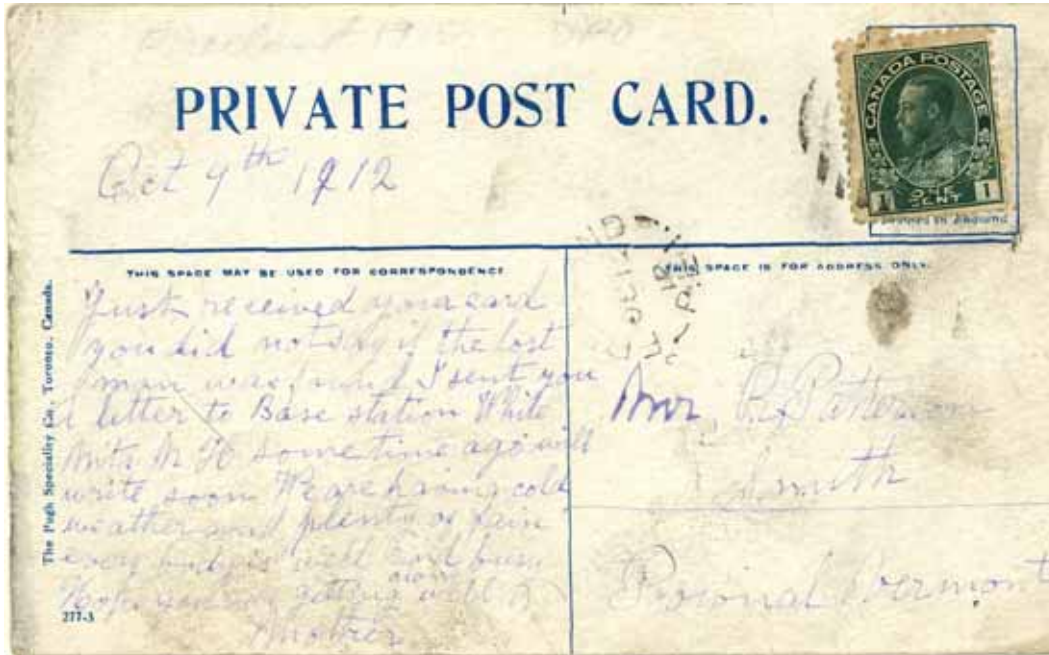 PRIVATE POST CARD.
Oct 9th 1912
CANADA POSTAGE
ONE CENT
1 1
THIS SPACE MAY BE USED FOR CORRESPONDENCE
THIS SPACE IS FOR ADDRESS ONLY.
Just received your card
you did not say if the lost
man was found I sent you
a letter to Base station White
Mnts N H some time ago will
write soon We are having cold
weather and plenty of rain
every body is well and busy
Hope you are getting along well
Mother
Mr, Patterson
Smith
Vermont
The Pugh Speciality Co., Toronto, Canada.
277-3